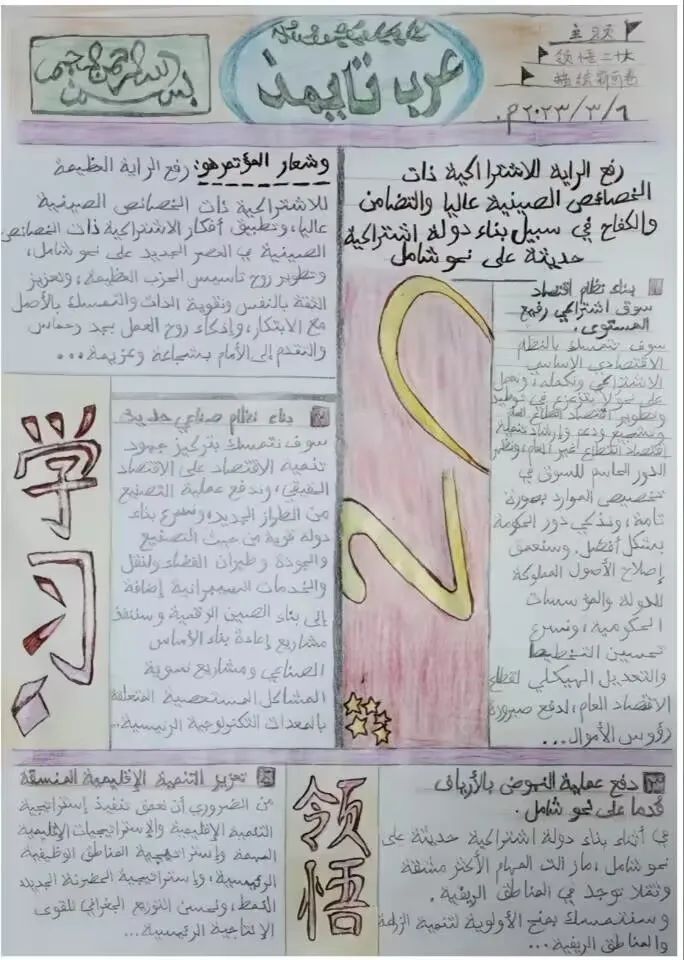 بسم الله الرحمن الرحيم
عرب تايمذ
主题
领悟二十大
描绘新画卷
٢٠٢٣/٣/٦م.
رفع الراية للاشتراكية ذات
الخصائص الصينية عاليا والتضامن
والكفاح في سبيل بناء دولة اشتراكية
حديثة على نحو شامل
وشعار المؤتمر هو: رفع الراية العظيمة
للاشتراكية ذات الخصائص الصينية
عاليا، وتطبيق أفكار الاشتراكية ذات الخصائص
الصينية في العصر الجديد على نحو شامل،
وتطوير روح تاسيس الحزب العظيمة، وتعزيز
الثقة بالنفس وتقوية الذات والتمسك بالأصل
مع الابتكار، وإذكاء روح العمل بجد وحماس
والتقدم إلى الأمام بشجاعة وعزيمة...
بناء نظام اقتصاد
سوق اشتراكي رفيع
المستوى.
سوف نتمسك بالنظام
الاقتصادي الاساسي
الاشتراكي ونكمله، ونعمل
على نحو لا يتزعزع في توطيد
وتطوير اقتصاد القطاع العام
وتشجيع ودعم وإرشاد تنمية
اقتصاد القطاع غير العام، ونظهر
الدور الحاسم للسوق في
تخصيص الموارد بصورة
تامة، ونذكي دور الحكومة
بشكل أفضل. وسنعمق
إصلاح الأصول المملوكة
للدولة والمؤسسات
الحكومية، ونسرع
تحسين التخطيط
والتعديل الهيكلي لقطاع
الاقتصاد العام، لدفع صيرورة
رؤوس الأموال...
20
学习
بناء نظام صناعي حديث
سوف نتمسك بتركيز جهود
تنمية الاقتصاد على الاقتصاد
الحقيقي، وندفع عملية التصنيع
من الطراز الجديد، ونسرع بناء
دولة قوية من حيث التصنيع
والجودة وطيران الفضاء والنقل
والخدمات السيبرانية إضافة
إلى بناء الصين الرقمية وسننفذ
مشاريع إعادة بناء الأساس
الصناعي ومشاريع تسوية
المشاكل المستعصية المتعلقة
بالمعدات التكنولوجية الرئيسية...
دفع عملية النهوض بالأرياف
قدما على نحو شامل.
في أثناء بناء دولة اشتراكية حديثة على
نحو شامل، مازالت المهام الأكثر مشقة
وثقلا توجد في المناطق الريفية.
وسنتمسك بمنح الأولوية لتنمية الزراعة
والمناطق الريفية...
领悟
تعزيز التنمية الإقليمية المنسقة
من الضروري أن نعمق تنفيذ إستراتيجية
التنمية الإقليمية والإستراتيجيات الإقليمية
المهمة وإستراتيجية المناطق الوظيفية
الرئيسية، وإستراتيجية الحضرنة الجديدة
النمط، وتحسن التوزيع الجغرافي للقوى
الإنتاجية الرئيسية...